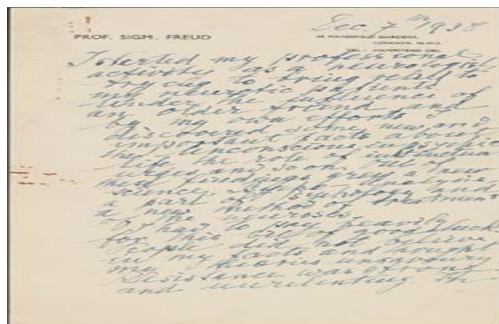 Dec 7th 1938
PROF. SIGM. FREUD
MARESFIELD GARDENS,
LONDON. N.W.3.
HAMPSTEAD
I started my professional
activity as a neurologist
trying to bring relief to
my neurotic patients.
Under the influence of
an older friend and
by my own efforts I
discovered some new and
important facts about
the unconscious in psychic
life the role of instinctual
urges and so on. Out of
these findings grew a new
science, and
a part of psychology and
a new method of treatment
of the neuroses.
I had to pay heavily
for this bit of good luck.
People did not believe
in my facts and thought
my theories unsavoury.
Resistance was strong
and unrelenting. In